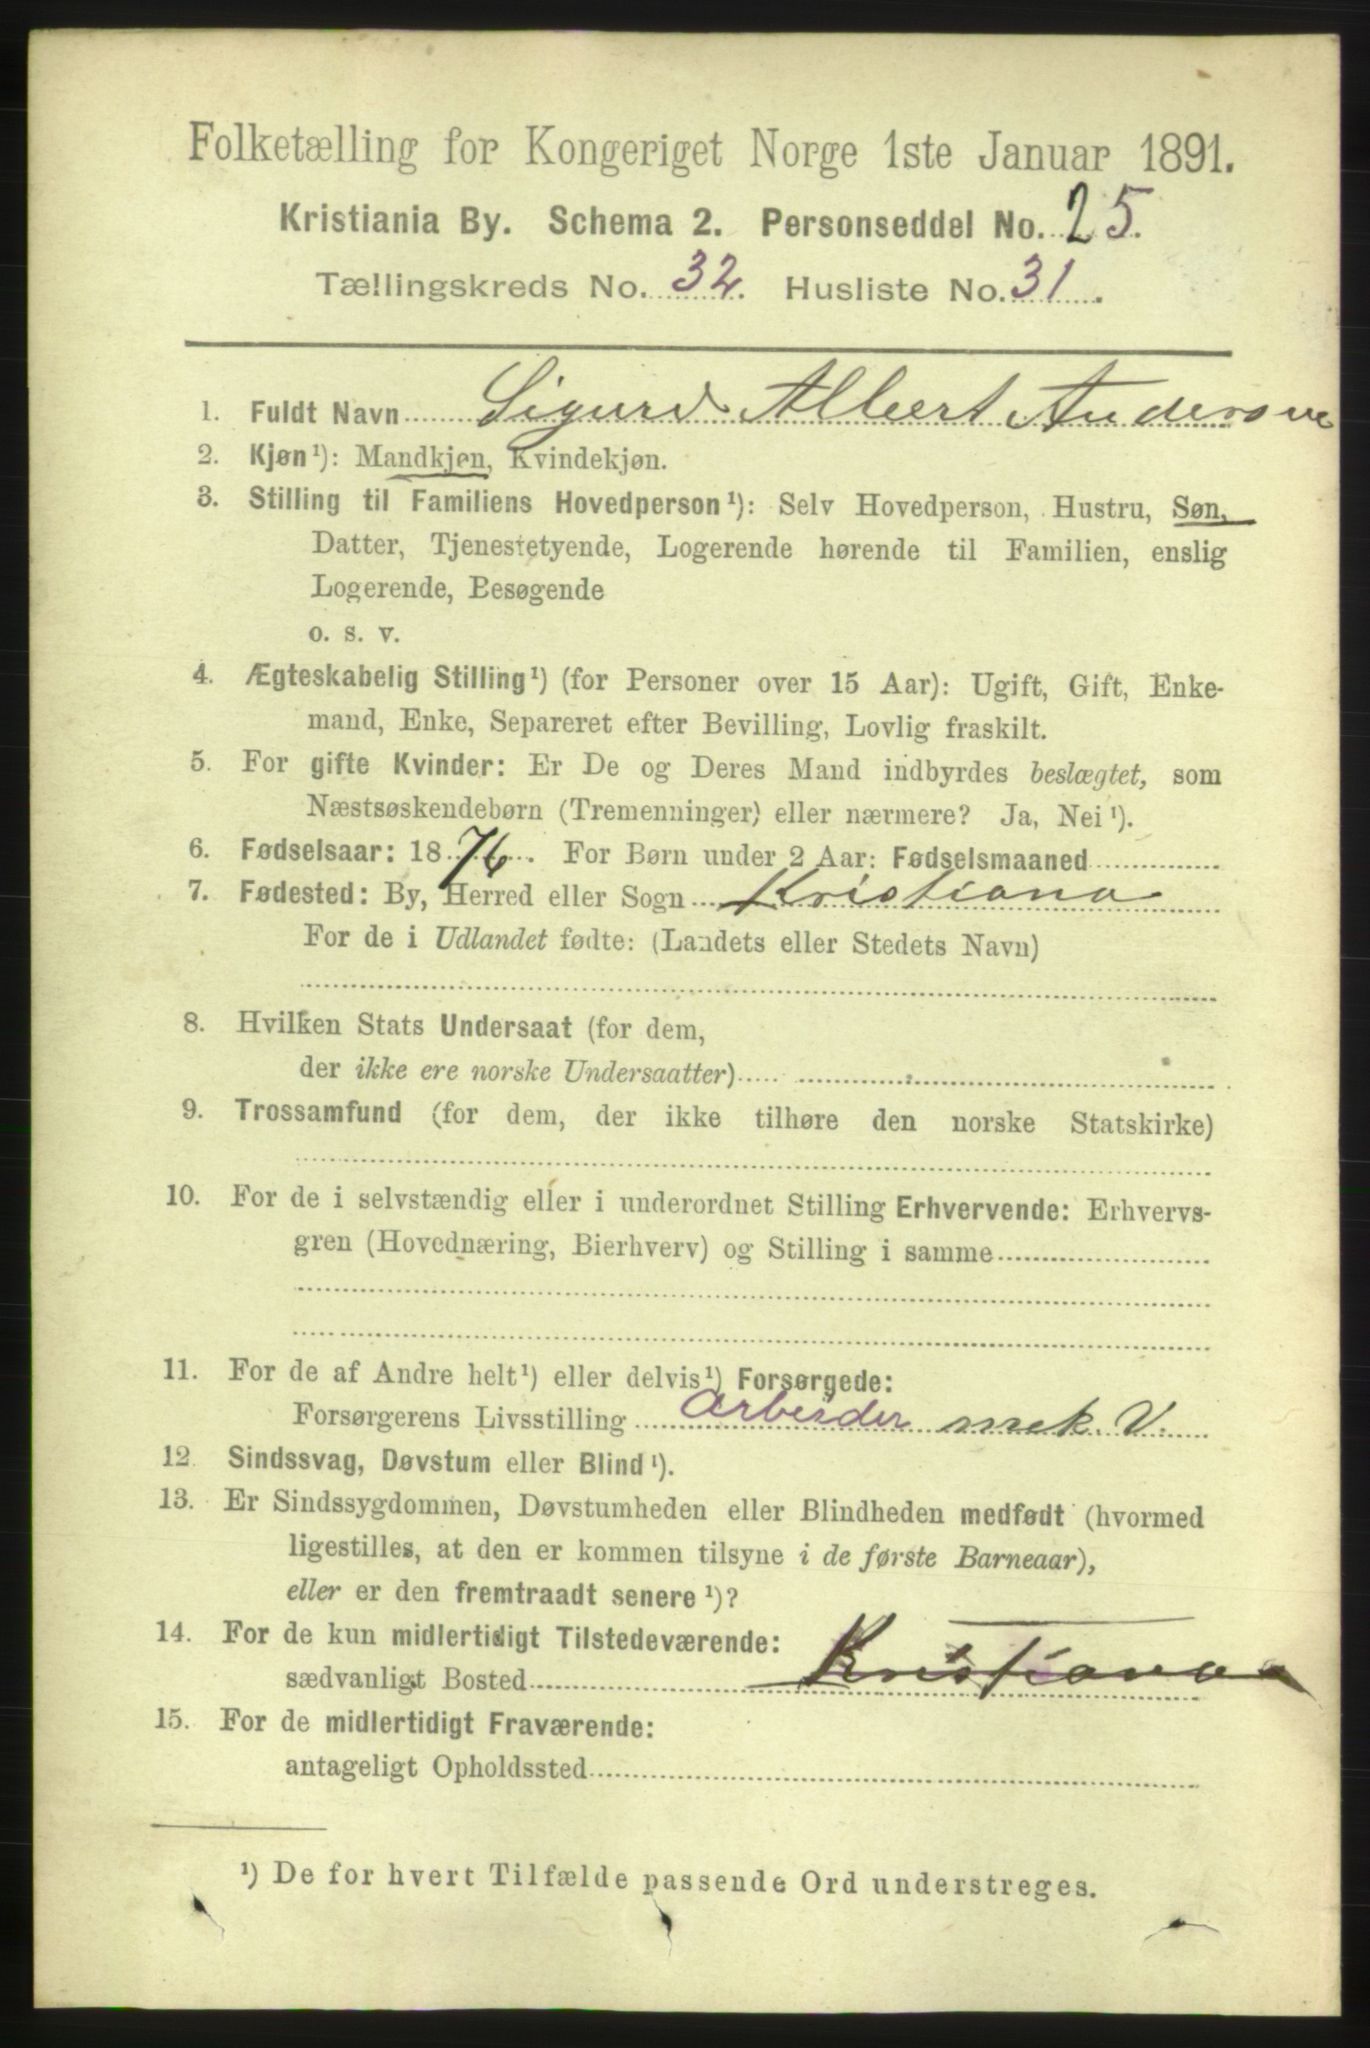 Folketælling for Kongeriget Norge 1ste Januar 1891.
Kristiania By. Schema 2. Personseddel No. 25.
Tællingskreds No. 32. Husliste No. 31.
1. Fuldt Navn Sigurd Albert Andersen
2. Kjøn¹): Mandkjøn, Kvindekjøn.
3. Stilling til Familiens Hovedperson¹): Selv Hovedperson, Hustru, Søn,
Datter, Tjenestetyende, Logerende hørende til Familien, enslig
Logerende, Besøgende
o. s. v.
4. Ægteskabelig Stilling¹) (for Personer over 15 Aar): Ugift, Gift, Enke-
mand, Enke, Separeret efter Bevilling, Lovlig fraskilt.
5. For gifte Kvinder: Er De og Deres Mand indbyrdes beslægtet, som
Næstsøskendebørn (Tremenninger) eller nærmere? Ja, Nei¹).
6. Fødselsaar: 1876. For Børn under 2 Aar: Fødselsmaaned
7. Fødested: By, Herred eller Sogn Kristiana
For de i Udlandet fødte: (Landets eller Stedets Navn)
8. Hvilken Stats Undersaat (for dem,
der ikke ere norske Undersaatter)
9. Trossamfund (for dem, der ikke tilhøre den norske Statskirke)
10. For de i selvstændig eller i underordnet Stilling Erhvervende: Erhvervs-
gren (Hovednæring, Bierhverv) og Stilling i samme
11. For de af Andre helt¹) eller delvis¹) Forsørgede:
Forsørgerens Livsstilling Arbeider mek. V.
12. Sindssvag, Døvstum eller Blind¹).
13. Er Sindssygdommen, Døvstumheden eller Blindheden medfødt (hvormed
ligestilles, at den er kommen tilsyne i de første Barneaar),
eller er den fremtraadt senere¹)?
14. For de kun midlertidigt Tilstedeværende:
sædvanligt Bosted Kristiana
15. For de midlertidigt Fraværende:
antageligt Opholdssted
¹) De for hvert Tilfælde passende Ord understreges.